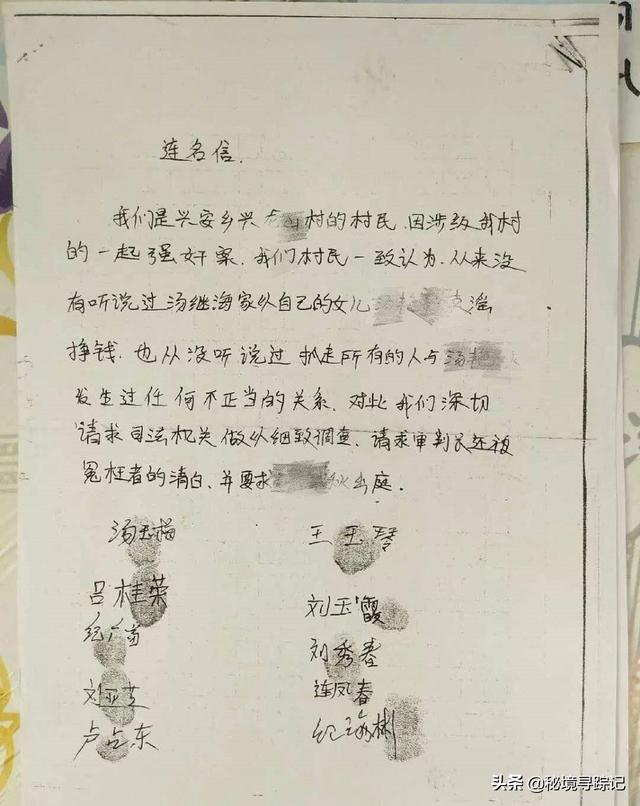 连名信.
我们是兴安乡兴 村的村民.因涉及我村
的一起强奸案.我们村民一致认为.从来没
有听说过汤继海家从自己的女儿 卖淫
挣钱.也从没听说过 抓走所有的人与汤
发生过任何不正当的关系.对此我们深切
请求司法机关做从细致调查.请求审判长还被
冤枉者的清白.并要求 秋出庭.
汤玉梅 王玉琴
吕桂荣 刘玉霞
纪广 刘秀春
刘亚芝 连凤春
卢占东 纪海彬
头条 @秘境寻踪记